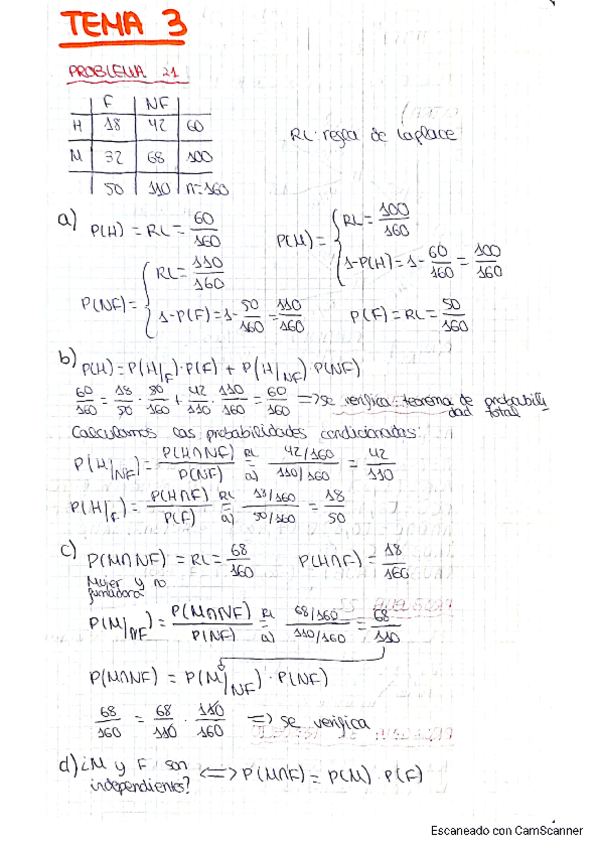 TEMA 3
PROBLEMA 21
F NF
H 18 42 60
M 32 68 100
50 110 n=160
RL: regla de Laplace
a) P(H) = RL = 60/160
P(M) = { RL = 100/160
1-P(H) = 1- 60/160 = 100/160
P(NF) = { RL = 110/160
1-P(F) = 1- 50/160 = 110/160
P(F) = RL = 50/160
b) P(H) = P(H/F) · P(F) + P(H/NF) · P(NF)
60/160 = 18/50 · 80/160 + 42/110 · 110/160 = 60/160 => se verifica teorema de probabili
dad total
Calculamos las probabilidades condicionadas:
P(H/NF) = P(H∩NF)/P(NF) RL = a) 42/160 / 110/160 = 42/110
P(H/F) = P(H∩F)/P(F) RL = a) 18/160 / 50/160 = 18/50
c) P(M∩NF) = RL = 68/160 P(H∩F) = 18/160
Mujer y no
fumadora
P(M/NF) = P(M∩NF)/P(NF) RL = a) 68/160 / 110/160 = 68/110
P(M∩NF) = P(M/NF) · P(NF)
68/160 = 68/110 · 110/160 => se verifica
d) ¿M y F son
independientes? <=> P(M∩F) = P(M) · P(F)
Escaneado con CamScanner